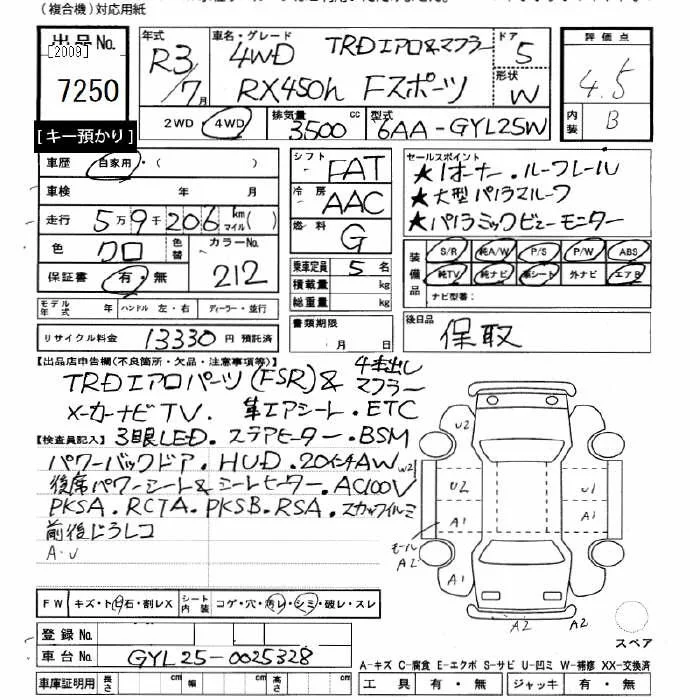 (複合機)対応用紙
出品No. [2009] 7250
[キー預かり]
年式 R3/7月
車名・グレード 4WD TRDエアロ&マフラー
RX450h Fスポーツ
ドア 5
形状 W
評価点 4.5
内装 B
2WD・4WD
排気量 3500 cc
型式 6AA-GYL25W
車歴 自家用・( )
車検 年 月
走行 5万9千206 km マイル( )
色 クロ 色替 カラーNo. 212
保証書 有・無
モデル年式 ハンドル 左・右 ディーラー・並行
リサイクル料金 13330円 預託済
シフト FAT
冷房 AAC
燃料 G
乗車定員 5名
積載量 kg
総重量 kg
書類期限 月 日
セールスポイント
★1オーナー.ルーフレール
★大型パノラマルーフ
★パノラミックビューモニター
装備品 S/R 純A/W P/S P/W ABS
純TV 純ナビ 革シート 外ナビ エアB
ナビ型番:
後日品 保取
【出品店申告欄(不良箇所・欠品・注意事項等)】
TRDエアロパーツ(FSR)& 4本出しマフラー
メーカーナビTV. 革エアシート.ETC
【検査員記入】3眼LED.ステアヒーター.BSM
パワーバックドア.HUD.20インチAW
後席パワーシート&シートヒーター.AC100V
PKSA.RCTA.PKSB.RSA.スカッフイルミ
前後ドラレコ
A・U
U2
W2
U2
U1
A1
A1
モール A2
A1
A2
A2
スペア
FW キズ・ト・石・割レX シート内装 コゲ・穴・汚レ・シミ・破レ・スレ
登録No.
車台No. GYL25-0025328
A-キズ C-腐食 E-エクボ S-サビ U-凹ミ W-補修 XX-交換済
車庫証明用 長さ cm 幅 cm 高さ cm
工具 有・無 ジャッキ 有・無